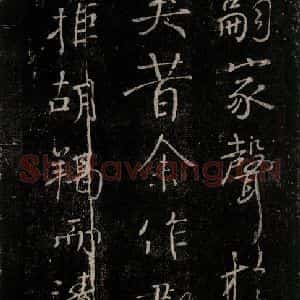 嗣家聲於
矣昔余作郡
拒胡羯而請
Shufawang.CN